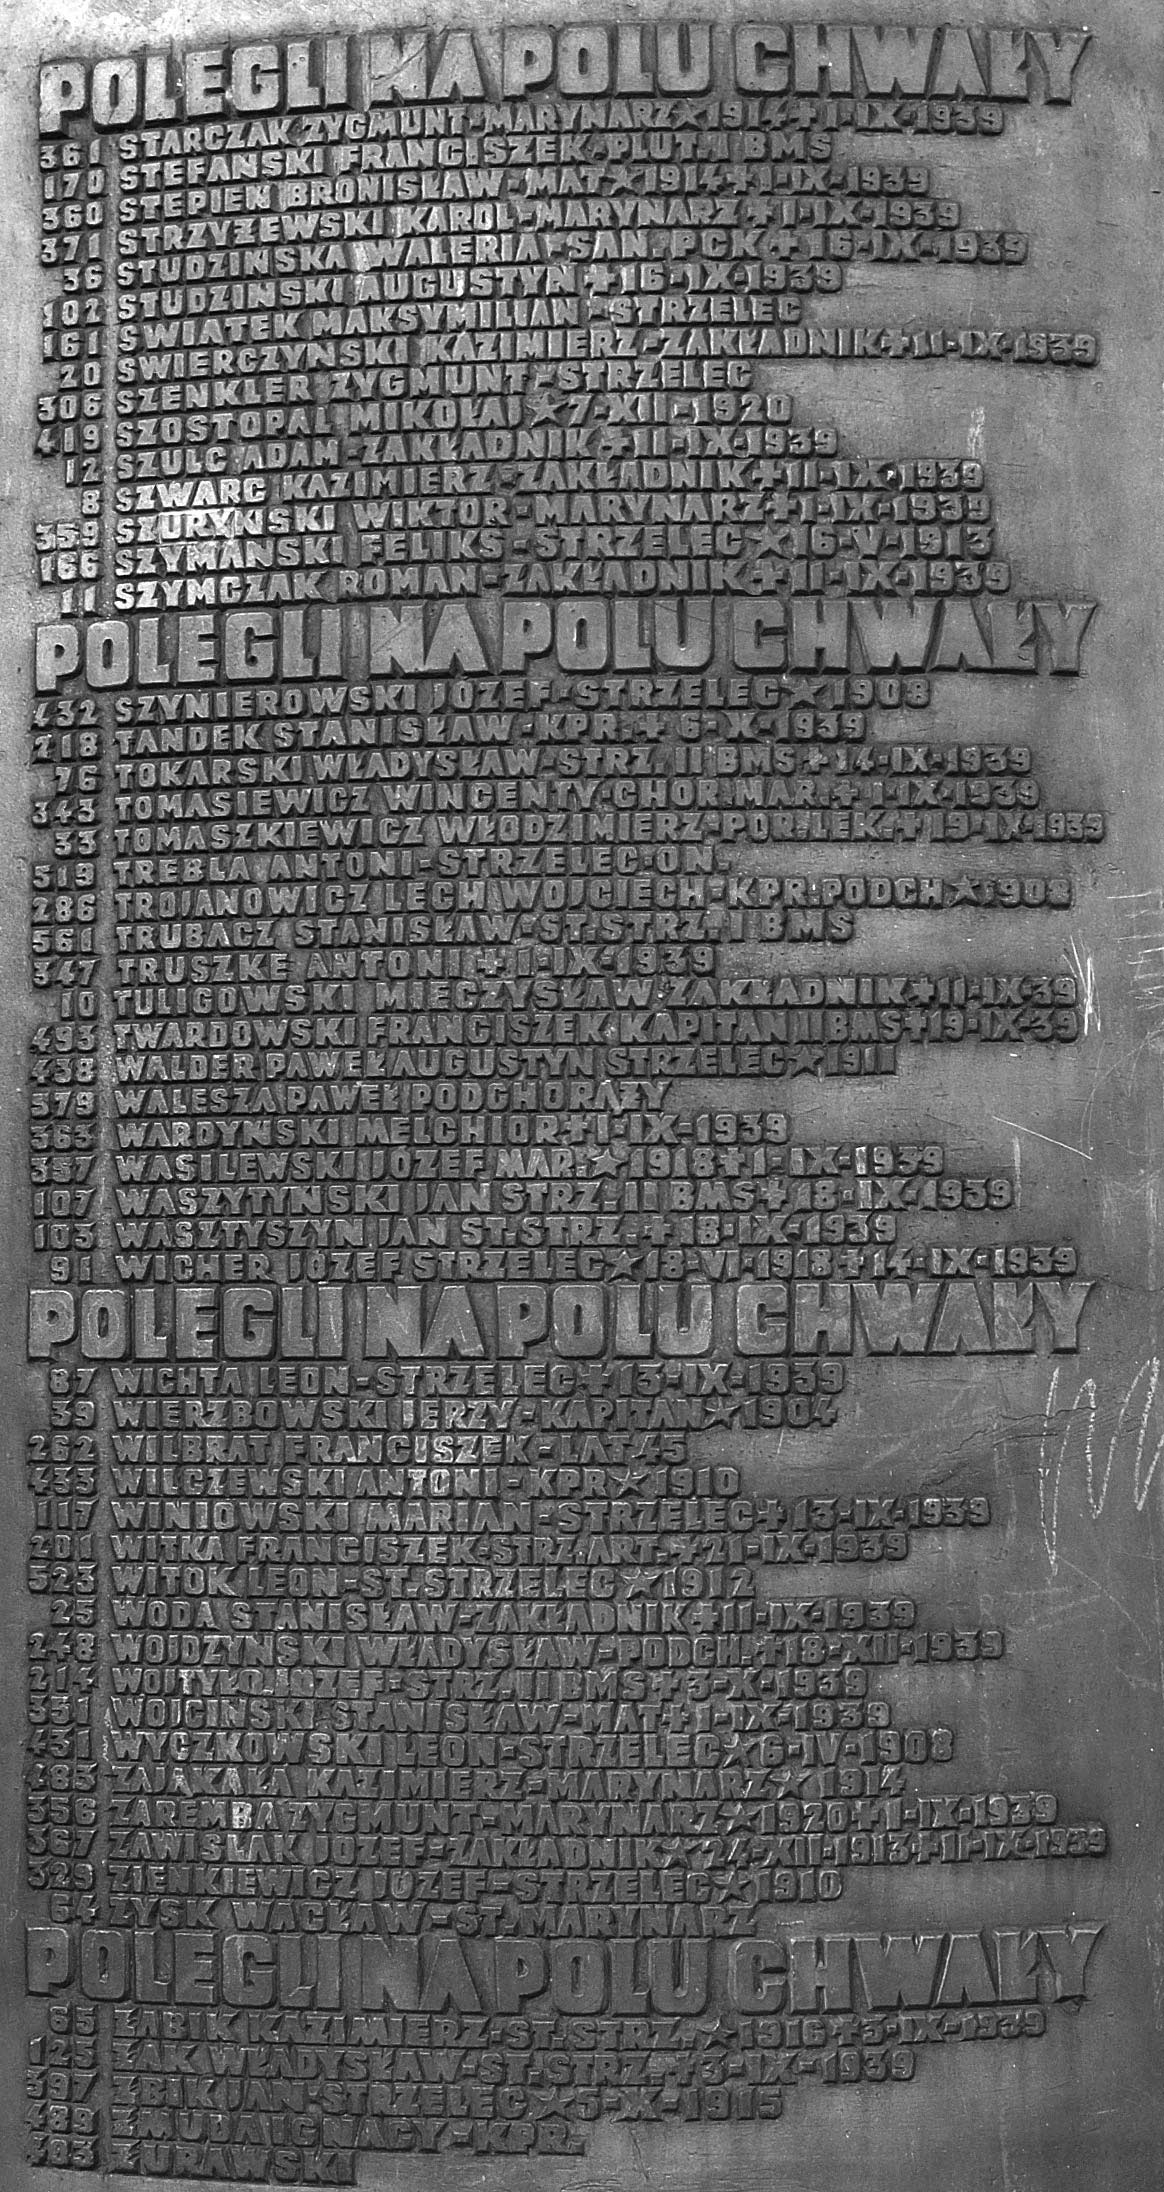 POLEGLI NA POLU CHWAŁY
361 STARCZAK ZYGMUNT-MARYNARZ★1914✝1-IX-1939
170 STEFANSKI FRANCISZEK-PLUT. I BMS
360 STEPIEN BRONISŁAW-MAT★1914✝1-IX-1939
371 STRZYŻEWSKI KAROL-MARYNARZ✝1-IX-1939
36 STUDZINSKA WALERIA-SAN. PCK✝16-IX-1939
102 STUDZINSKI AUGUSTYN✝16-IX-1939
161 SWIATEK MAKSYMILIAN-STRZELEC
20 SWIERCZYNSKI KAZIMIERZ-ZAKŁADNIK✝11-IX-1939
306 SZENKLER ZYGMUNT-STRZELEC
419 SZOSTOPAL MIKOŁAJ★7-XII-1920
12 SZULC ADAM-ZAKŁADNIK✝11-IX-1939
8 SZWARC KAZIMIERZ-ZAKŁADNIK✝11-IX-1939
359 SZURYKISKI WIKTOR-MARYNARZ✝1-IX-1939
166 SZYMANSKI FELIKS-STRZELEC★16-V-1913
11 SZYMCZAK ROMAN-ZAKŁADNIK✝11-IX-1939
POLEGLI NA POLU CHWAŁY
432 SZYNIEROWSKI JOZEF-STRZELEC★1908
218 TANDEK STANISŁAW-KPR.✝6-X-1939
76 TOKARSKI WŁADYSŁAW-STRZ. II BMS✝14-IX-1939
343 TOMASIEWICZ WINCENTY-CHOR. MAR.✝1-IX-1939
33 TOMASZKIEWICZ WŁODZIMIERZ-POR. LEK.✝19-IX-1939
519 TREBLA ANTONI-STRZELEC-ON.
286 TROJANOWICZ LECH WOJCIECH-KPR. PODCH★1908
561 TRUBACZ STANISŁAW-ST. STRZ. I BMS
347 TRUSZKE ANTONI✝1-IX-1939
10 TULIGOWSKI MIECZYSŁAW ZAKŁADNIK✝11-IX-39
493 TWARDOWSKI FRANCISZEK KAPITAN II BMS✝19-IX-39
438 WALDER PAWEŁ AUGUSTYN STRZELEC★1911
579 WALESZA PAWEŁ PODCHORAŻY
363 WARDYNSKI MELCHIOR✝1-IX-1939
357 WASILEWSKI JOZEF MAR.★1918✝1-IX-1939
107 WASZYTYNSKI JAN STRZ. II BMS✝18-IX-1939
103 WASZTYSZYN JAN ST. STRZ.✝18-IX-1939
91 WICHER JOZEF STRZELEC★18-VI-1918✝14-IX-1939
POLEGLI NA POLU CHWAŁY
87 WICHTA LEON-STRZELEC✝13-IX-1939
39 WIERZBOWSKI JERZY-KAPITAN★1904
262 WILBRAT FRANCISZEK-LAT 45
433 WILCZEWSKI ANTONI-KPR★1910
117 WINIOWSKI MARIAN-STRZELEC✝13-IX-1939
201 WITKA FRANCISZEK-STRZ. ART.✝21-IX-1939
523 WITOK LEON-ST. STRZELEC★1912
25 WODA STANISŁAW-ZAKŁADNIK✝11-IX-1939
248 WOJDZYNSKI WŁADYSŁAW-PODCH.✝18-XII-1939
214 WOJTYŁO JOZEF-STRZ. II BMS✝3-X-1939
351 WOJCINSKI STANISŁAW-MAT✝1-IX-1939
431 WYCZKOWSKI LEON-STRZELEC★6-IV-1908
485 ZAJAKAŁA KAZIMIERZ-MARYNARZ★1914
356 ZAREMBA ZYGMUNT-MARYNARZ★1920✝1-IX-1939
367 ZAWISLAK JOZEF-ZAKŁADNIK★24-XII-1913✝11-IX-1939
329 ZIENKIEWICZ JOZEF-STRZELEC★1910
64 ZYSK WACŁAW-ST. MARYNARZ
POLEGLI NA POLU CHWAŁY
65 ŻABIK KAZIMIERZ-ST. STRZ.★1916✝3-IX-1939
125 ŻAK WŁADYSŁAW-ST. STRZ.✝3-IX-1939
397 ŻBIK JAN-STRZELEC★5-X-1915
489 ŻMUDA IGNACY-KPR.
403 ŻURAWSKI